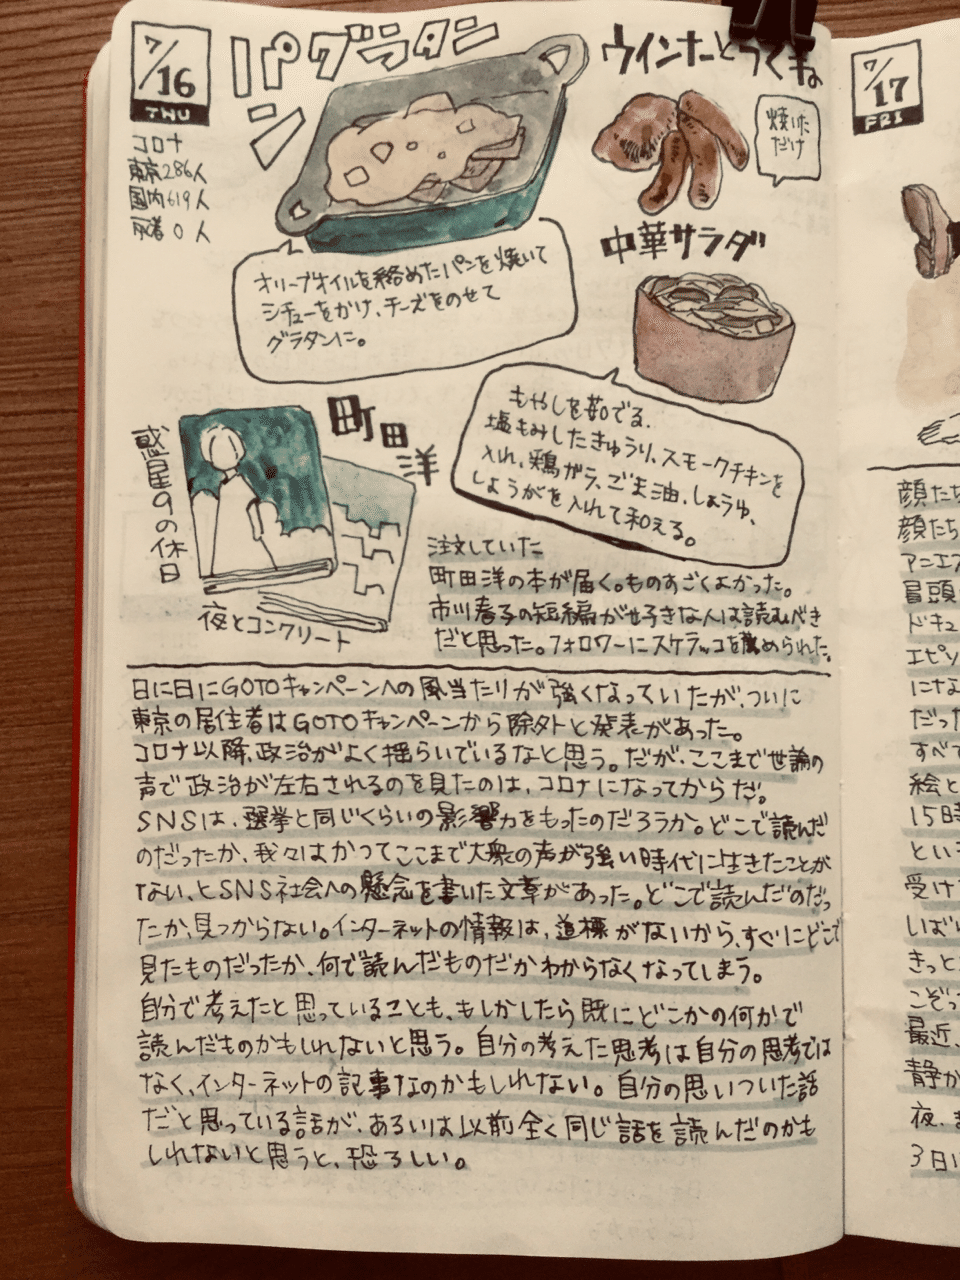 7/16
THU
コロナ
東京286人
国内619人
死者0人
パングラタン
オリーブオイルを絡めたパンを焼いて
シチューをかけ、チーズをのせて
グラタンに。
ウインナーとつくね
焼いた
だけ
中華サラダ
もやしを茹でる。
塩もみしたきゅうり、スモークチキンを
入れ、鶏ガラ、ごま油、しょうゆ、
しょうがを入れて和える。
町田洋
惑星9の休日
夜とコンクリート
注文していた
町田洋の本が届く。ものすごくよかった。
市川春子の短編が好きな人は読むべき
だと思った。フォロワーにスケラッコを薦められた。
日に日にGOTOキャンペーンへの風当たりが強くなっていたが、ついに
東京の居住者はGOTOキャンペーンから除外と発表があった。
コロナ以降、政治がよく揺らいでいるなと思う。だが、ここまで世論の
声で政治が左右されるのを見たのは、コロナになってからだ。
SNSは、選挙と同じくらいの影響力をもったのだろうか。どこで読んだ
のだったか、我々はかつてここまで大衆の声が強い時代に生きたことが
ない、とSNS社会への懸念を書いた文章があった。どこで読んだのだっ
たか、見つからない。インターネットの情報は、道標がないから、すぐにどこで
見たものだったか、何で読んだものだかわからなくなってしまう。
自分で考えたと思っていることも、もしかしたら既にどこかの何かで
読んだものかもしれないと思う。自分の考えた思考は自分の思考では
なく、インターネットの記事なのかもしれない。自分の思いついた話
だと思っている話が、あるいは以前全く同じ話を読んだのかも
しれないと思うと、恐ろしい。
7/17
FRI
顔たち
顔たち
アニエス
冒頭
ドキュ
エピソ
にな
だった
すべて
絵と
15時
といえ
受け
いばら
きっと
こぞっ
最近、
静か
夜、ま
3日に